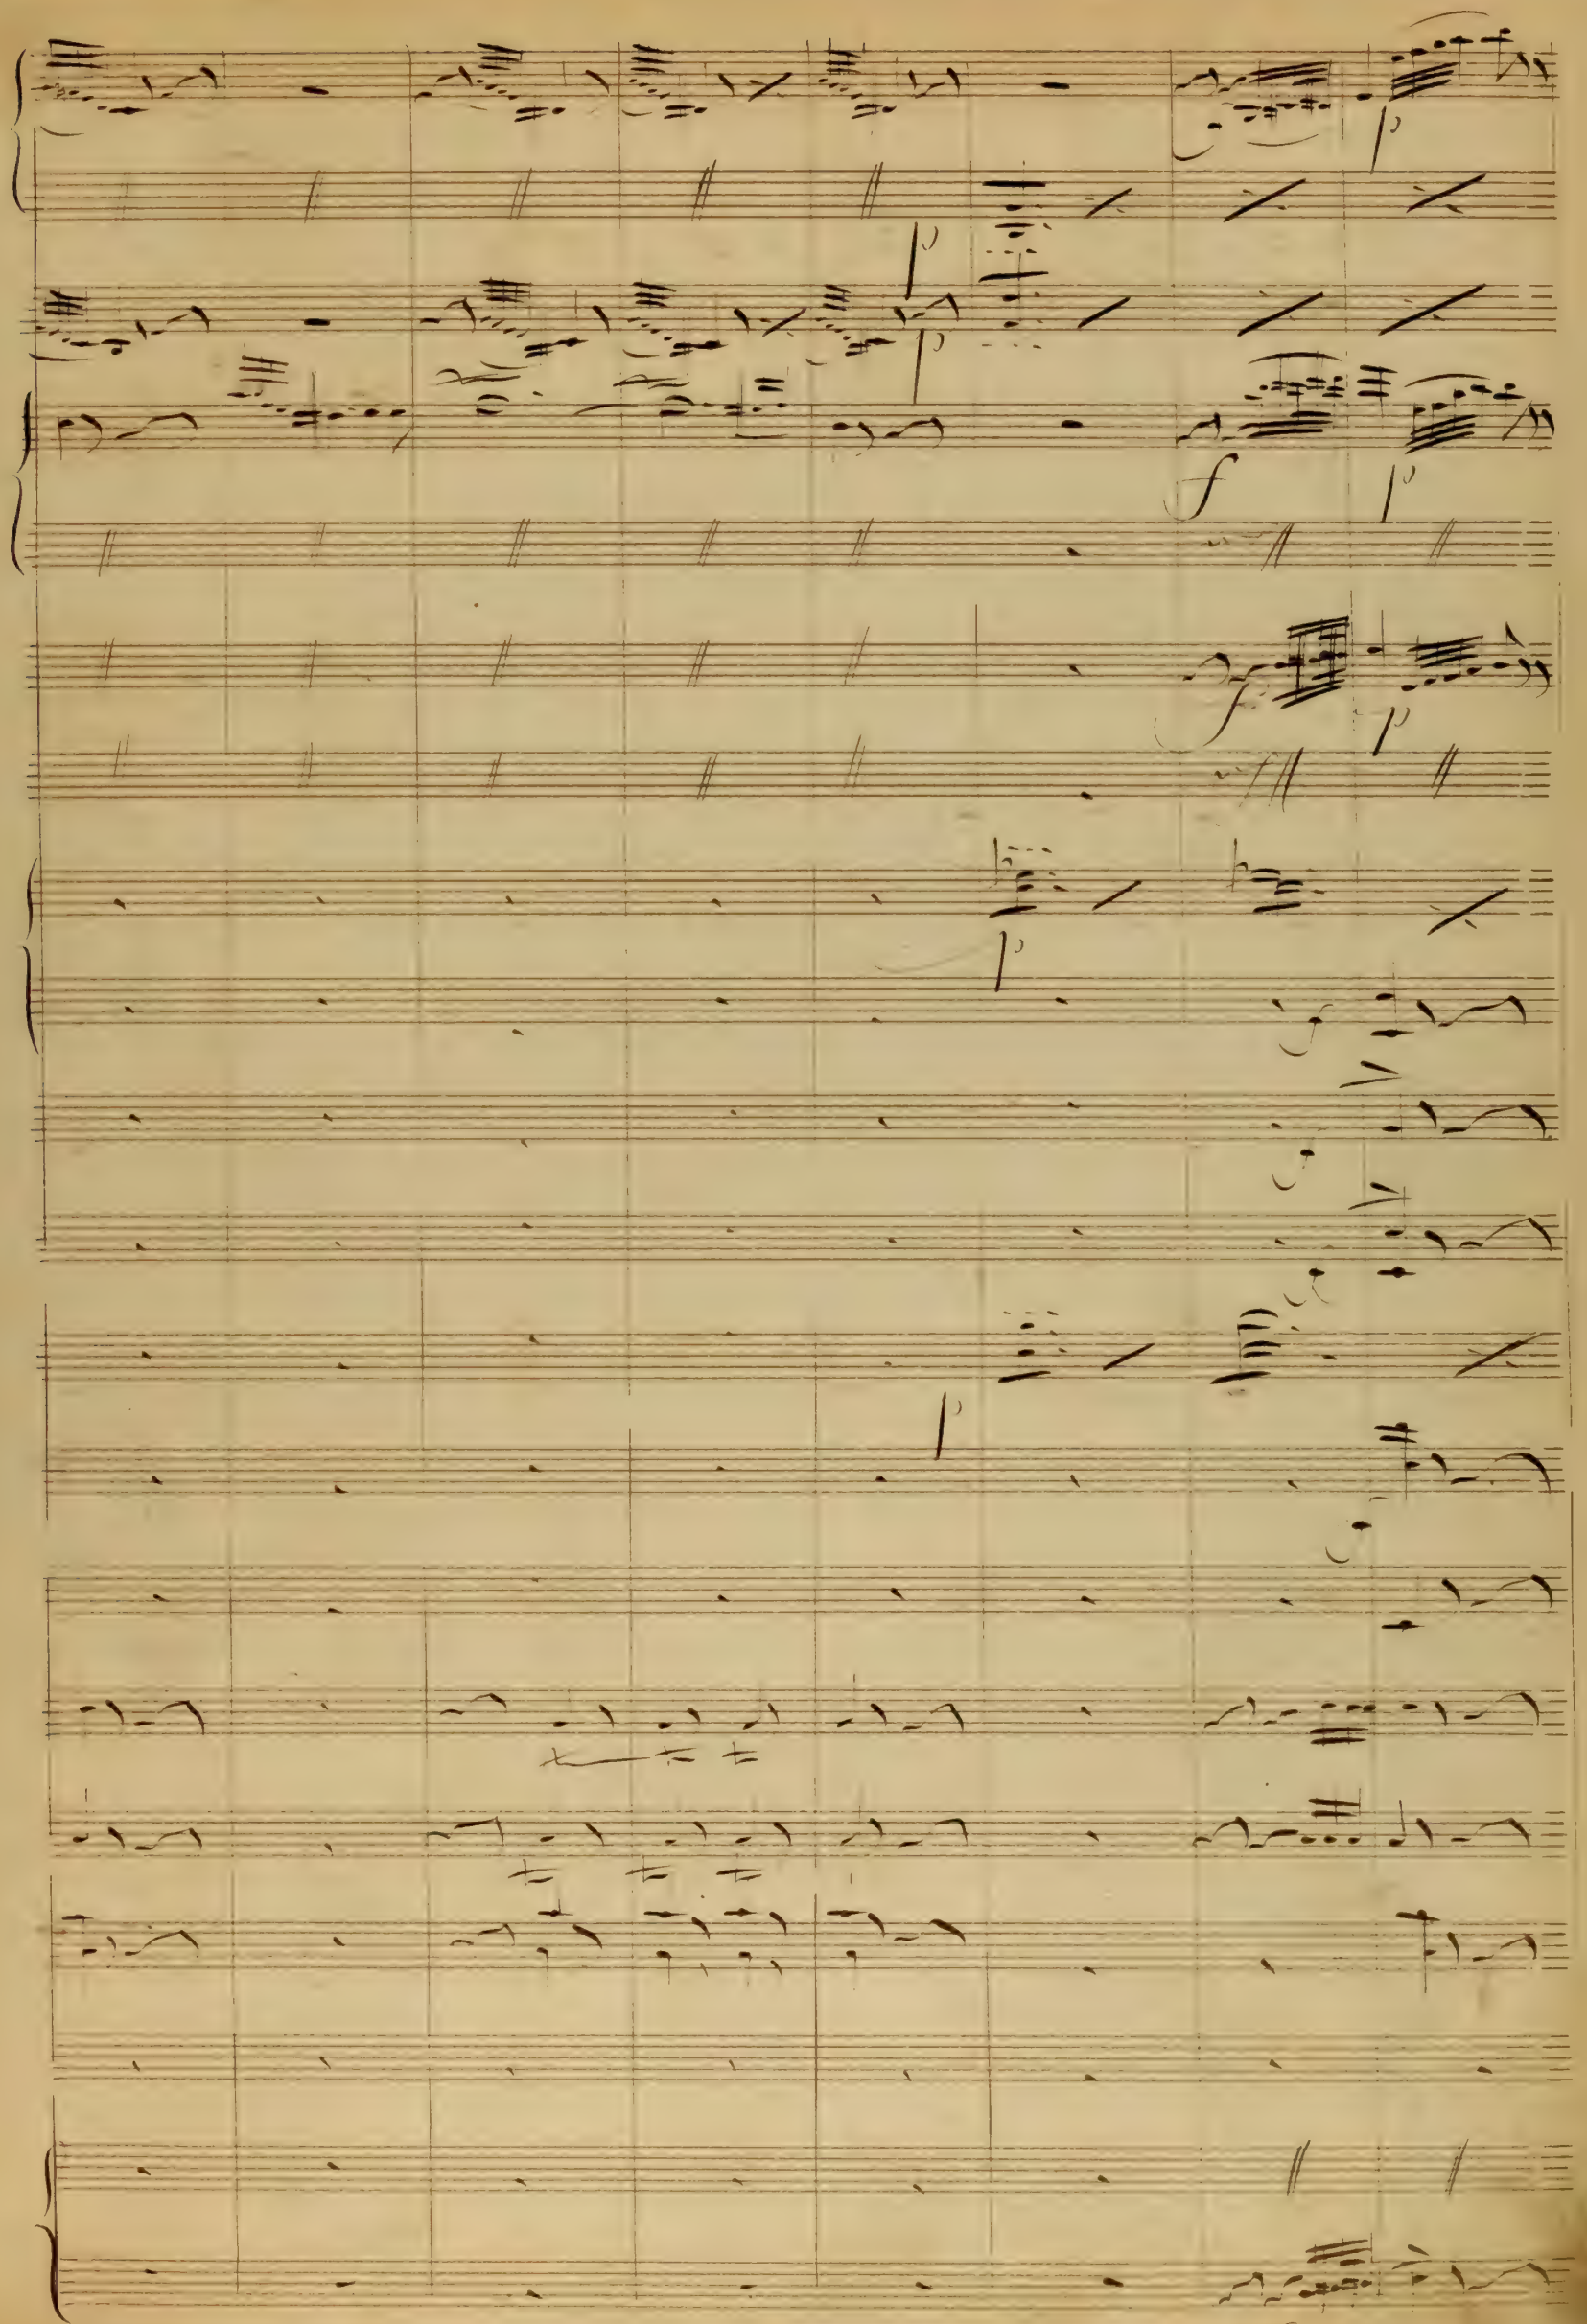 p
p
p
f p
f p
p
f
p